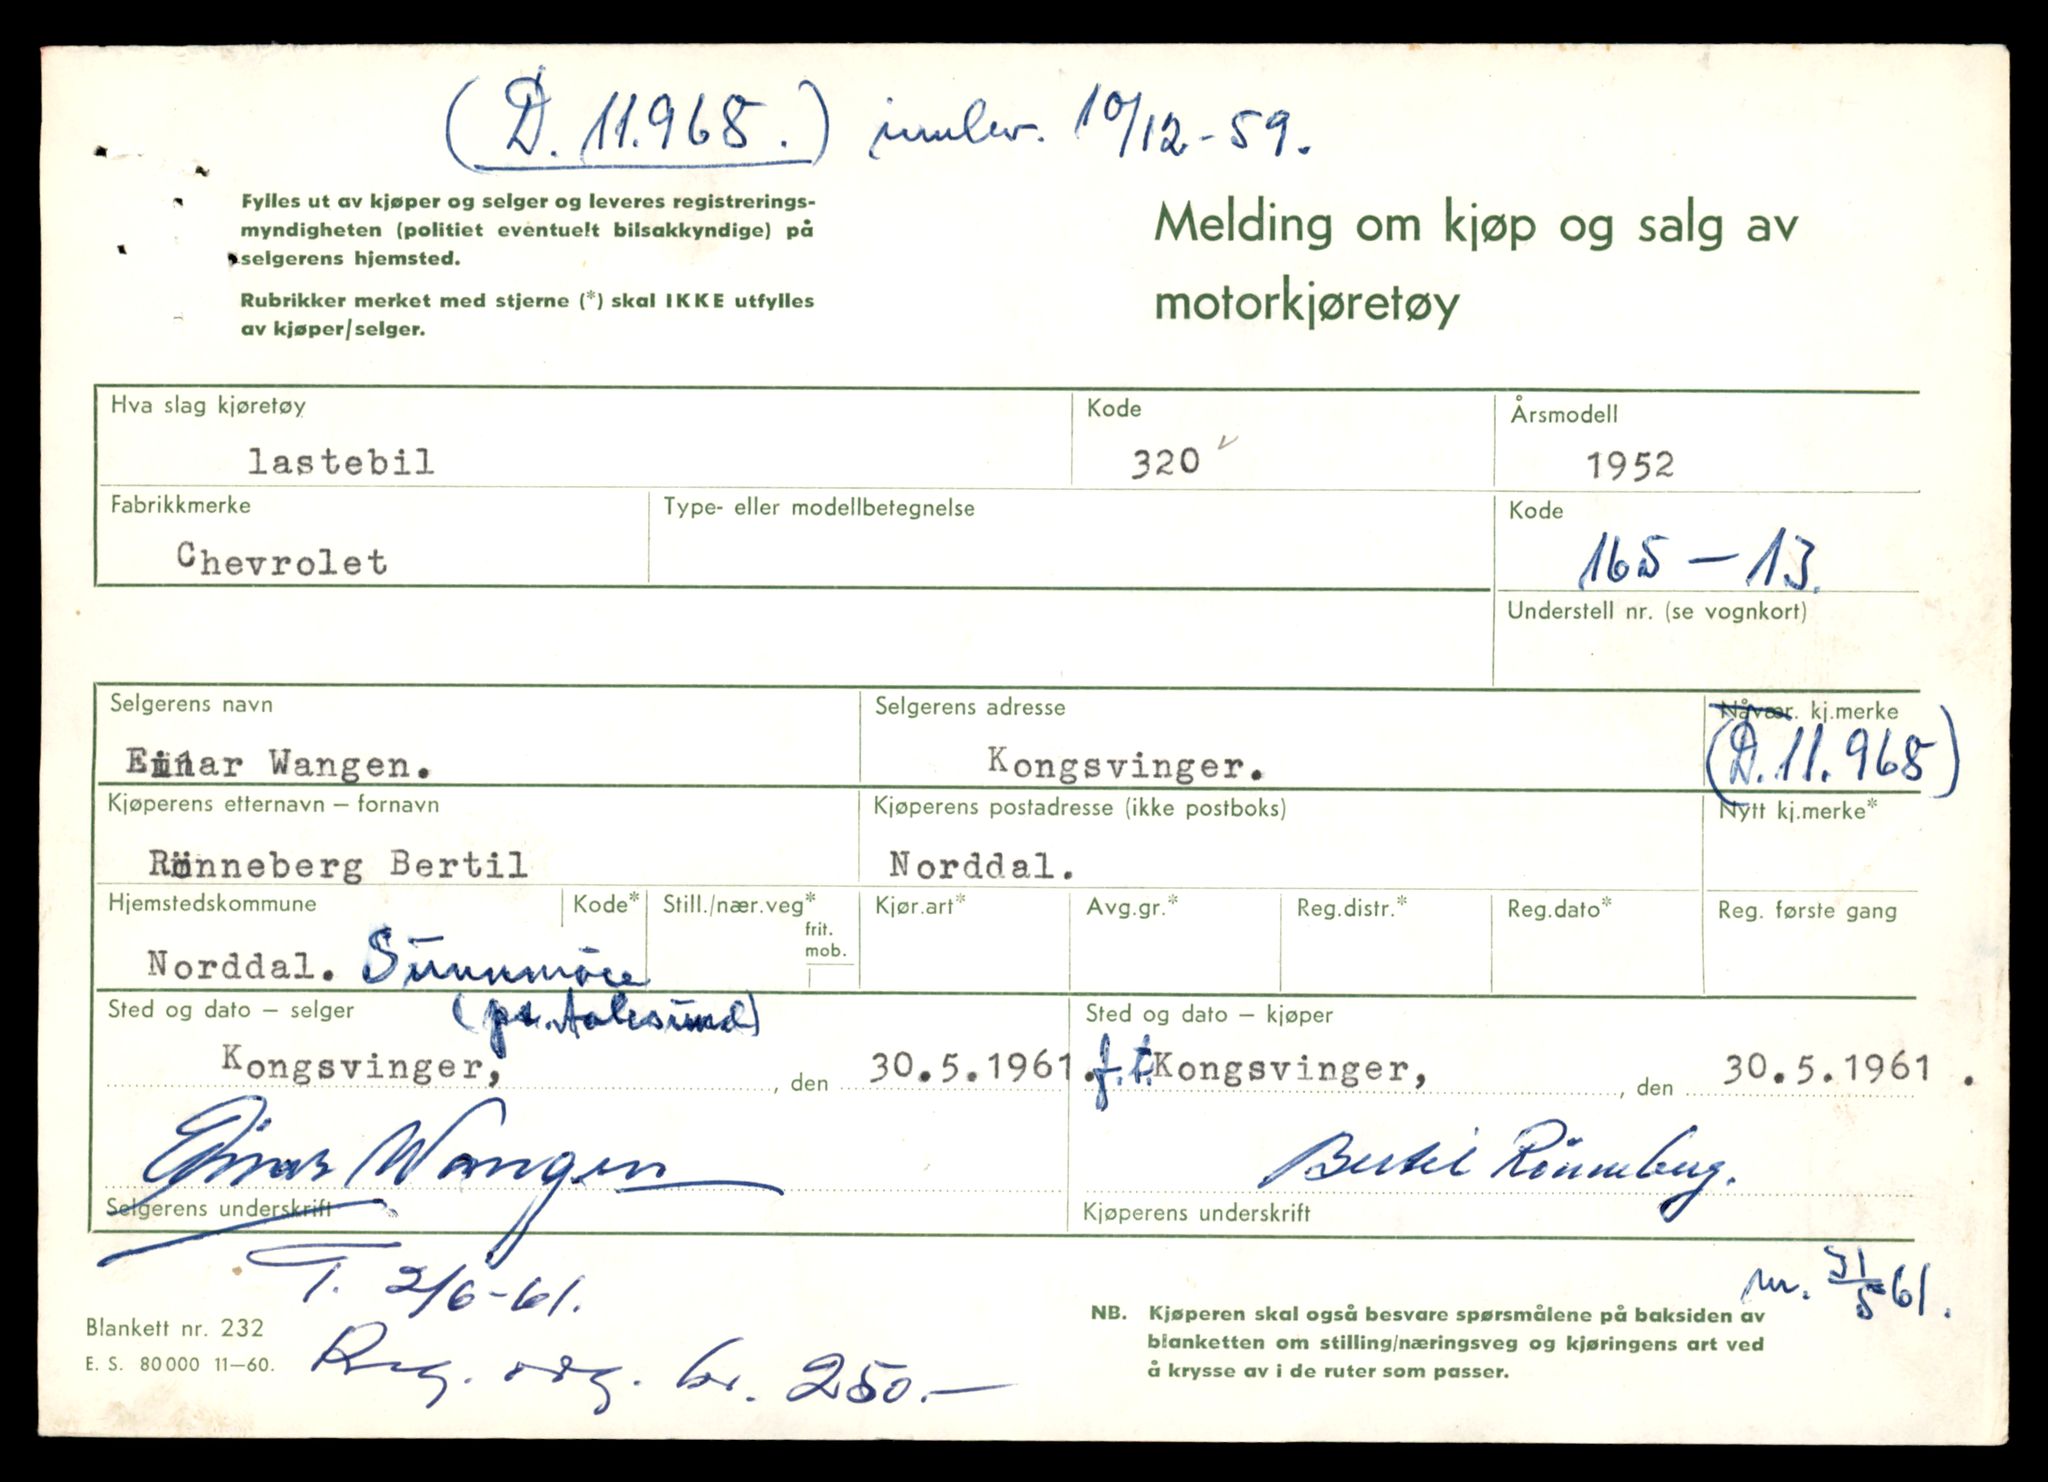 (D. 11.968.) innlev. 10/12-59.
Fylles ut av kjøper og selger og leveres registrerings-
myndigheten (politiet eventuelt bilsakkyndige) på
selgerens hjemsted.
Rubrikker merket med stjerne (*) skal IKKE utfylles
av kjøper/selger.
Melding om kjøp og salg av
motorkjøretøy
Hva slag kjøretøy Kode Årsmodell
lastebil 320 1952
Fabrikkmerke Type- eller modellbetegnelse Kode
Chevrolet 165 – 13.
Understell nr. (se vognkort)
Selgerens navn Selgerens adresse Nåvær. kj.merke
Einar Wangen. Kongsvinger. (D. 11.968)
Kjøperens etternavn – fornavn Kjøperens postadresse (ikke postboks) Nytt kj.merke*
Rönneberg Bertil Norddal.
Hjemstedskommune Kode* Still./nær.veg* frit. mob. Kjør.art* Avg.gr.* Reg.distr.* Reg.dato* Reg. første gang
Norddal. Sunnmöre
(pr. Aalesund)
Sted og dato – selger Sted og dato – kjøper
Kongsvinger, , den 30.5.1961. f.t. Kongsvinger, , den 30.5.1961 .
Einar Wangen Bertil Rönneberg.
Selgerens underskrift Kjøperens underskrift
T. 2/6-61.
nr. 31/5 61.
Blankett nr. 232
E. S. 80000 11–60.
Reg. avg. kr. 250.–
NB. Kjøperen skal også besvare spørsmålene på baksiden av
blanketten om stilling/næringsveg og kjøringens art ved
å krysse av i de ruter som passer.